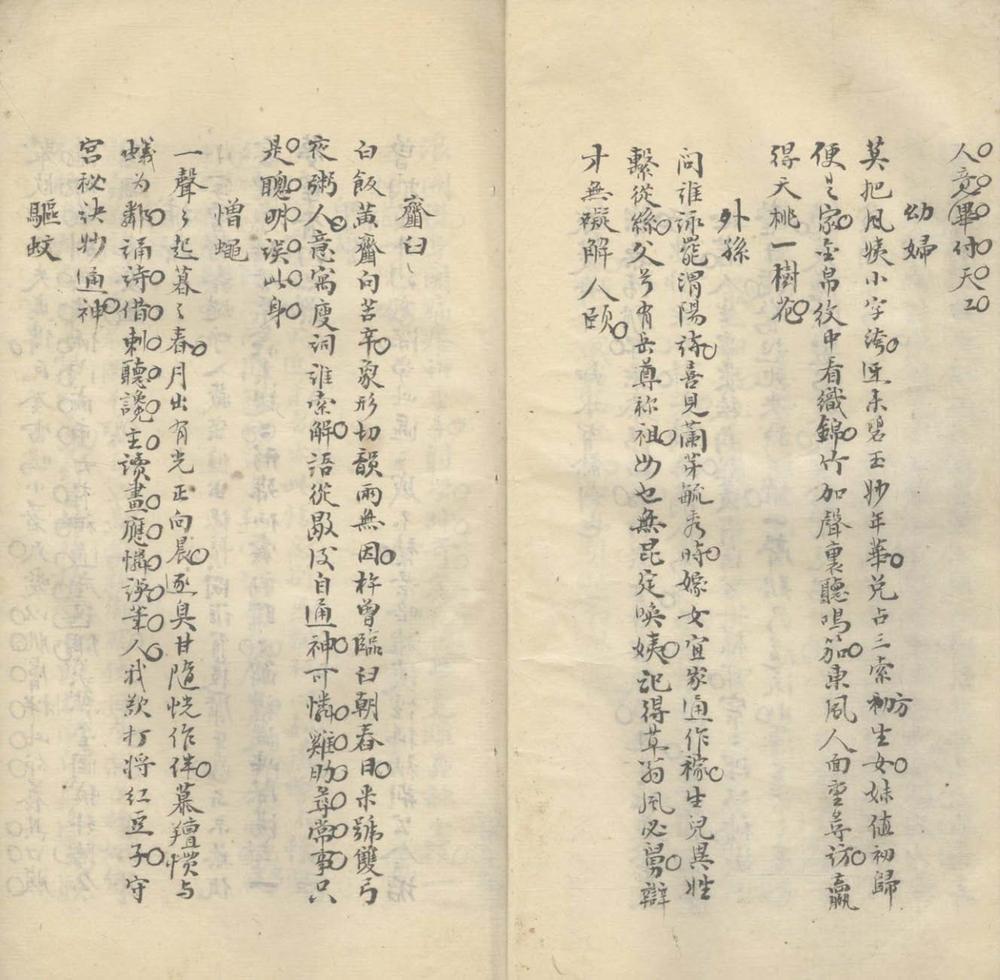 人竟畢付天工
幼婦
莫把風姨小字誇迎來碧玉妙年華兌占三索初方生女妹值初歸
便是家金帛紋中看織錦竹加聲裏聽鳴笳東風人面重尋訪贏
得夭桃一樹花
外孫
問誰詠罷渭陽詩喜見蘭芽毓秀時嫁女宜家通作稼生兒異姓
繫從絲父兮有岳尊祢祖母也無昆從喚姨記得草翁風必舅辯
才無礙解人頤
齏臼
白飯黃齏向苦辛象形切韻兩無因杵曾臨臼朝舂日米號雙弓
夜粥人意寓廋詞誰索解語從歇後自通神可憐雞肋尋常事只
是聰明誤此身
憎蠅
一聲々起暮々春月出有光正向晨逐臭甘隨恍作伴慕羶慣与
蟻为鄰誦詩借刺聽讒主讀畫應憐誤筆人我欲打將紅豆子守
宮祕訣妙通神
驅蚊